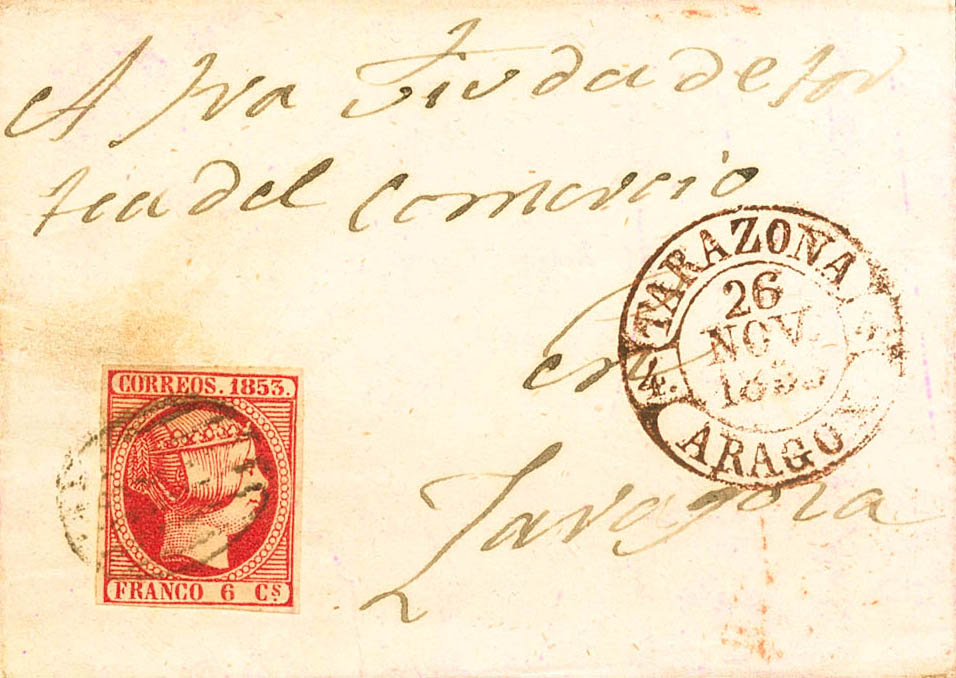 A Sra Viuda de For
tea del Comercio
en
Zaragoza
TARAZONA
26
NOV.
1853
4.
ARAGON
CORREOS. 1853.
FRANCO 6 Cs